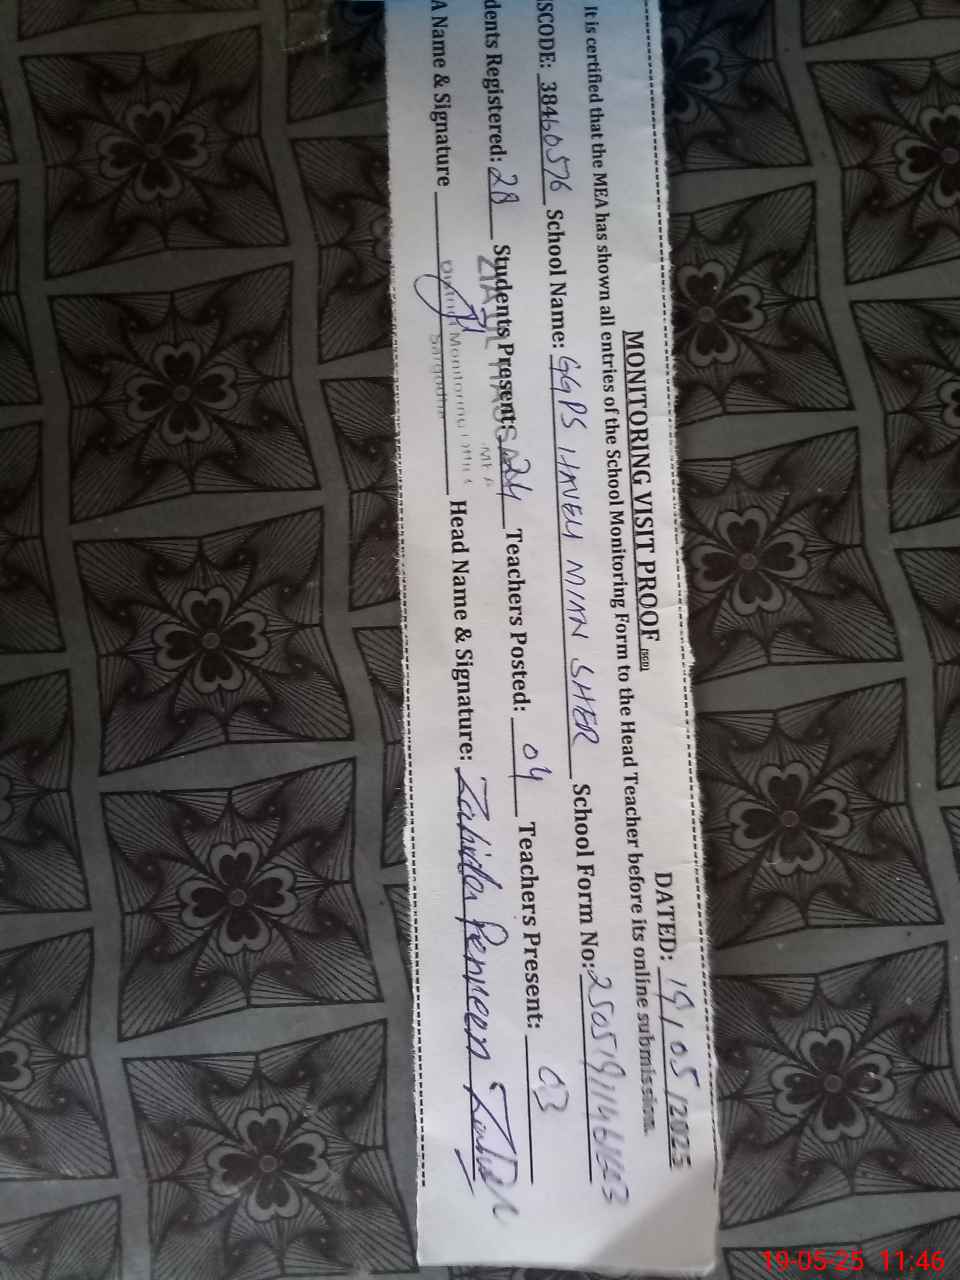 MONITORING VISIT PROOF (SGD) DATED: 19/05/2025
It is certified that the MEA has shown all entries of the School Monitoring Form to the Head Teacher before its online submission.
ISCODE: 38460576 School Name: GGPS HAVELI MIAN SHER School Form No:
dents Registered: 28 Students Present: 24 Teachers Posted: 04 Teachers Present: 03
A Name & Signature Head Name & Signature: Zahida Perveen
ZIA UL HASSAN
MEA
District Monitoring Office
Sargodha
19-05-25 11:46